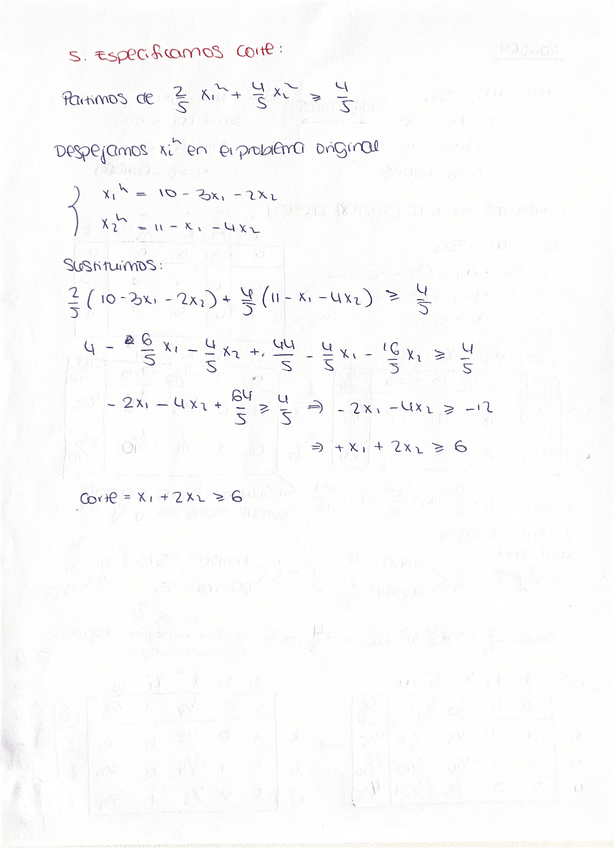 5. Especificamos corte:
Partimos de 2/5 x₁ʰ + 4/5 x₂ʰ ≥ 4/5
Despejamos xᵢʰ en el problema original
x₁ʰ = 10 - 3x₁ - 2x₂
x₂ʰ = 11 - x₁ - 4x₂
Sustituimos:
2/5 (10 - 3x₁ - 2x₂) + 4/5 (11 - x₁ - 4x₂) ≥ 4/5
4 - 6/5 x₁ - 4/5 x₂ + 44/5 - 4/5 x₁ - 16/5 x₂ ≥ 4/5
- 2x₁ - 4x₂ + 64/5 ≥ 4/5 ⇒ - 2x₁ - 4x₂ ≥ -12
⇒ + x₁ + 2x₂ ≥ 6
Corte = x₁ + 2x₂ ≥ 6